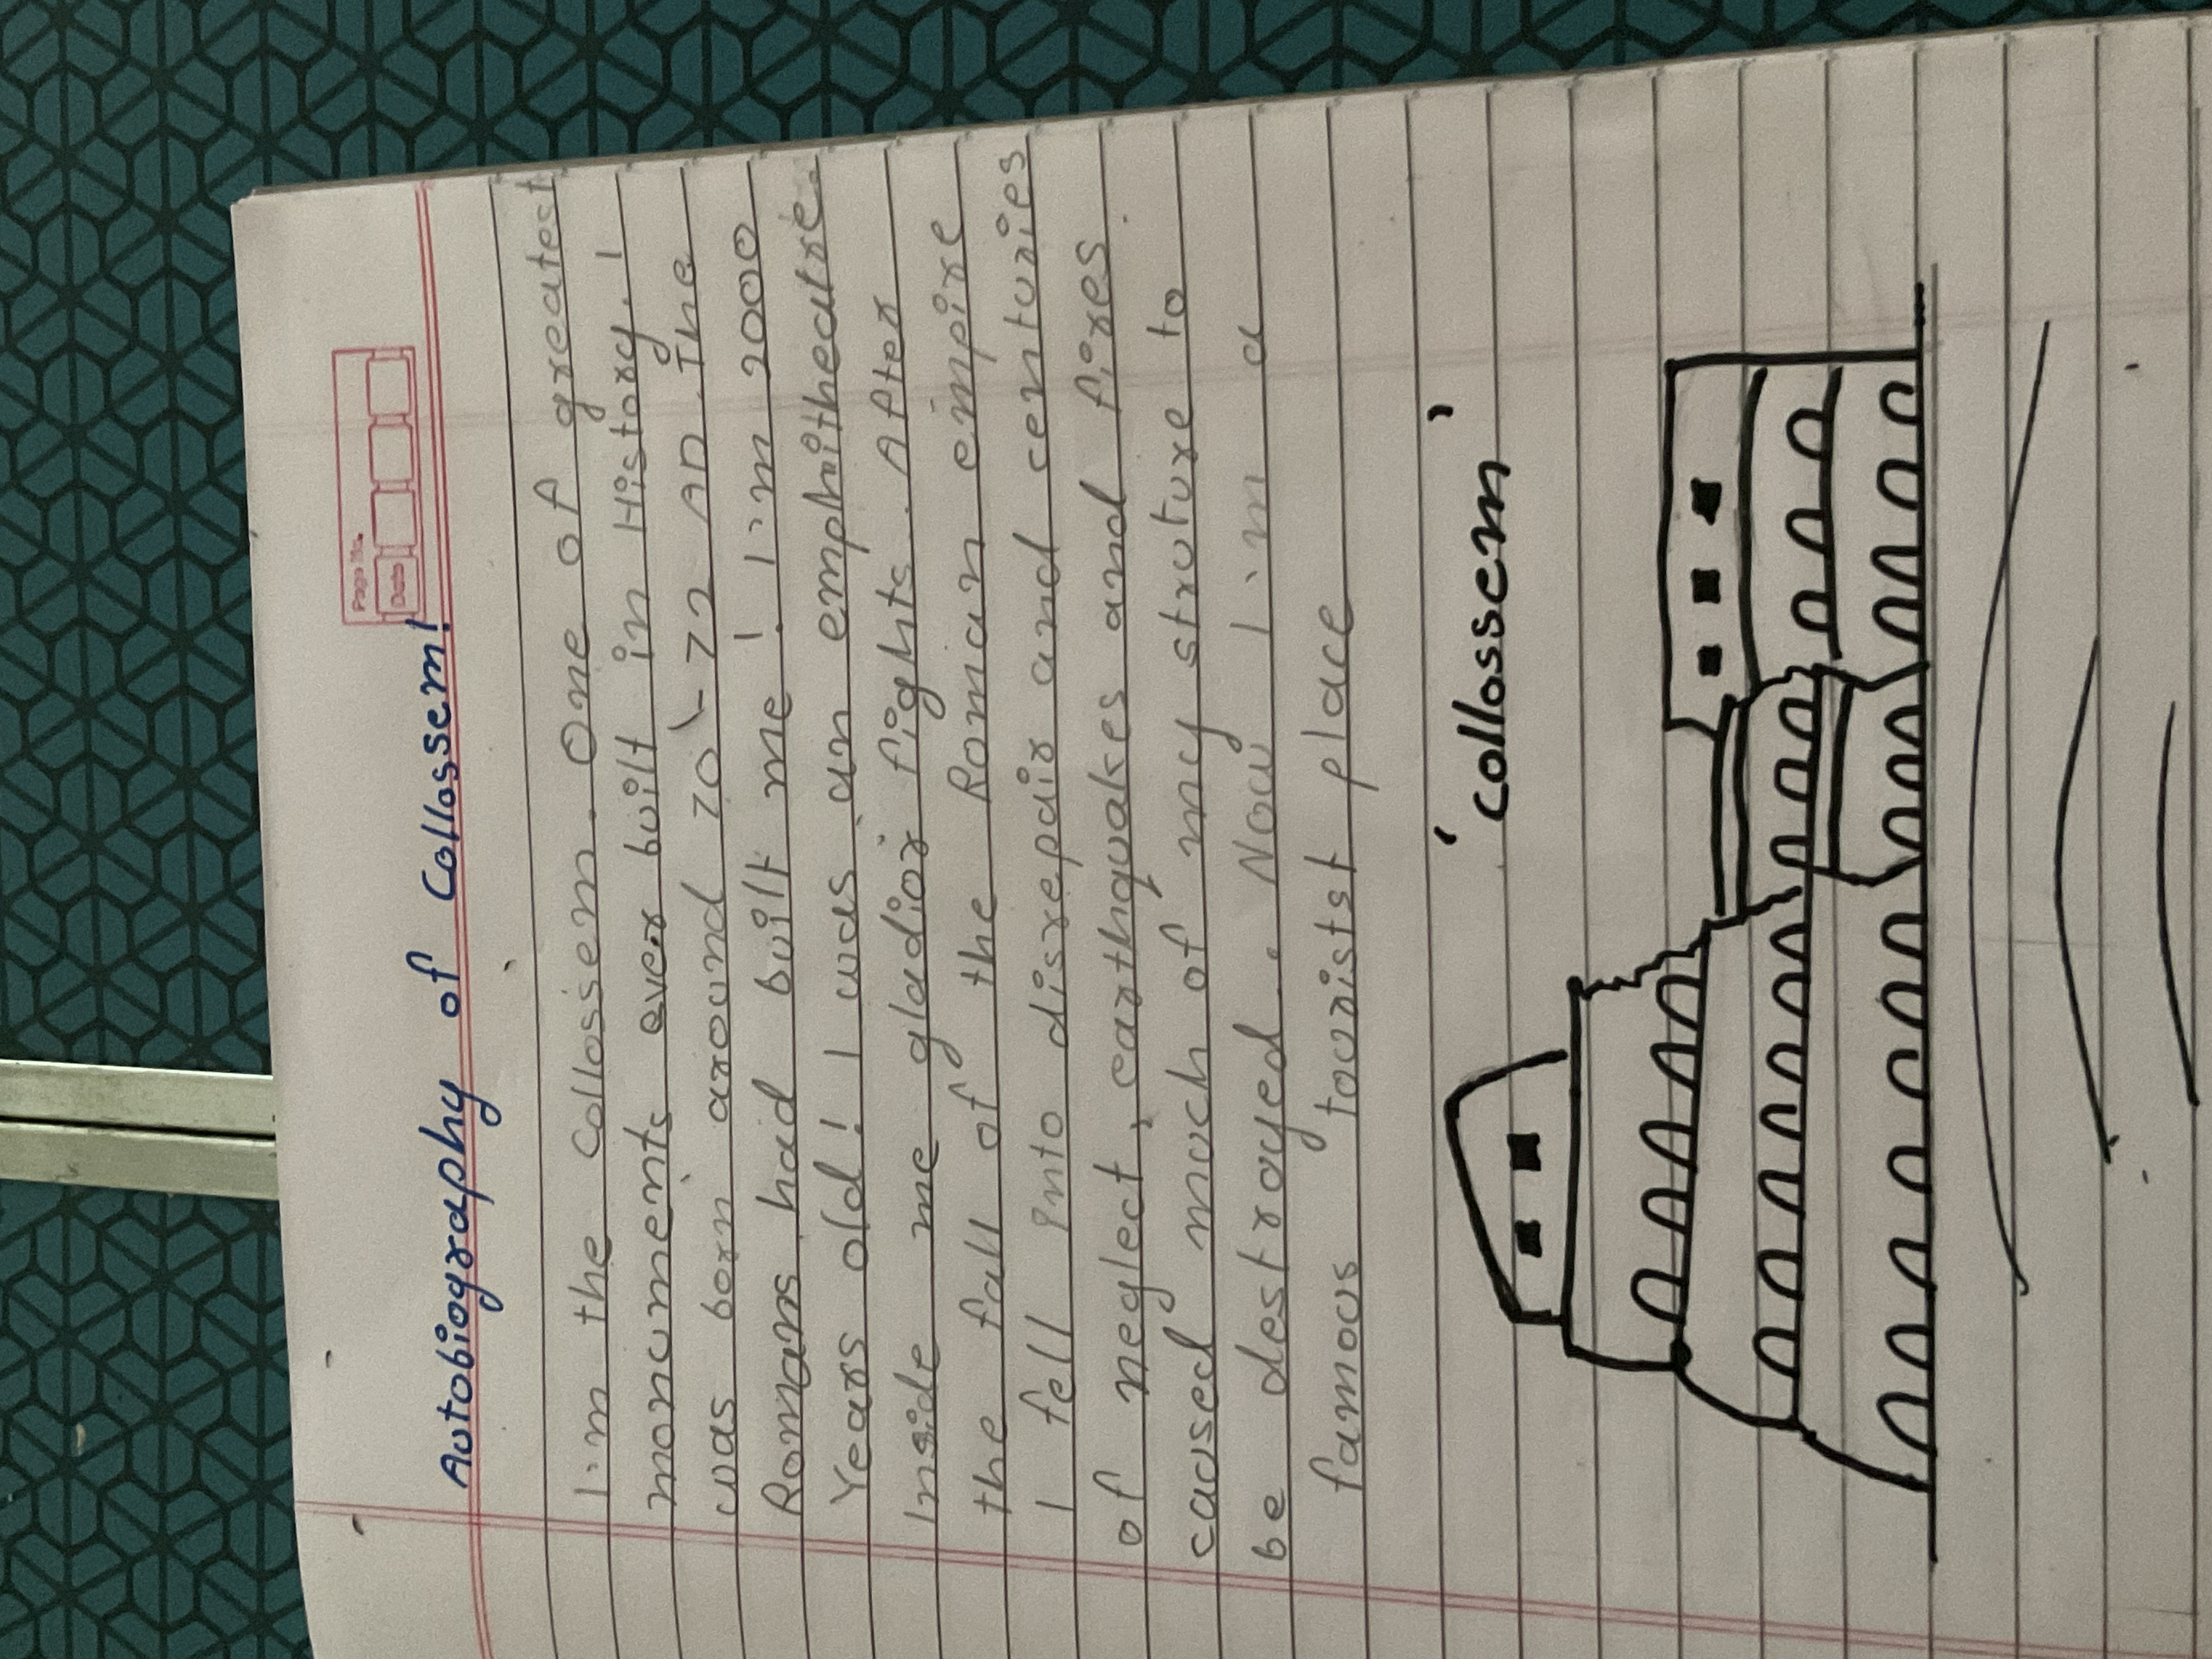 Page No.
Date
Autobiography of Collossem!
I'm the Collossem. One of greatest
monuments ever built in History. I
was born around 70 - 72 AD. The
Romans had built me! I'm 2000
Years old! I was an emphitheatre.
Inside me gladior fights. After
the fall of the Roman empire
I fell into disrepair and centuries
of neglect, earthquakes and fires
caused much of my struture to
be destroyed. Now I'm a
famous tourist place
'Collossem'